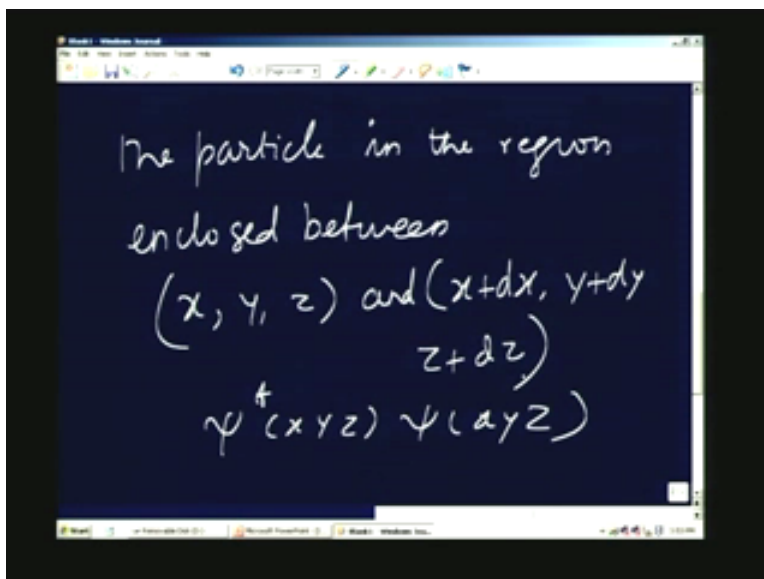 Note1 - Windows Journal
File Edit View Insert Actions Tools Help
Page Width
The particle in the region
enclosed between
(x, y, z) and (x+dx, y+dy
z+dz)
ψ*(x y z) ψ(x y z)
Start
Removable Disk (D:)
Microsoft PowerPoint
Windows Jou...